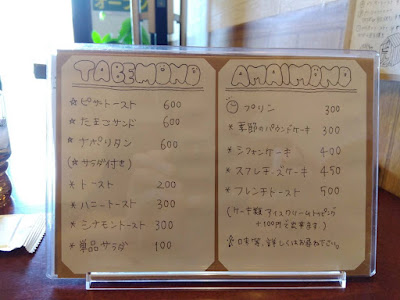 TABEMONO
☆ ピザトースト 600
☆ たまごサンド 600
☆ ナポリタン 600
(☆サラダ付き)
* トースト 200
* ハニートースト 300
* シナモントースト 300
* 単品サラダ 100
AMAIMONO
プリン 300
* 季節のパウンドケーキ 300
* シフォンケーキ 400
* スフレチーズケーキ 450
* フレンチトースト 500
(ケーキ類 アイスクリームトッピング
+100円で出来ます)
詳しくはお尋ね下さい。